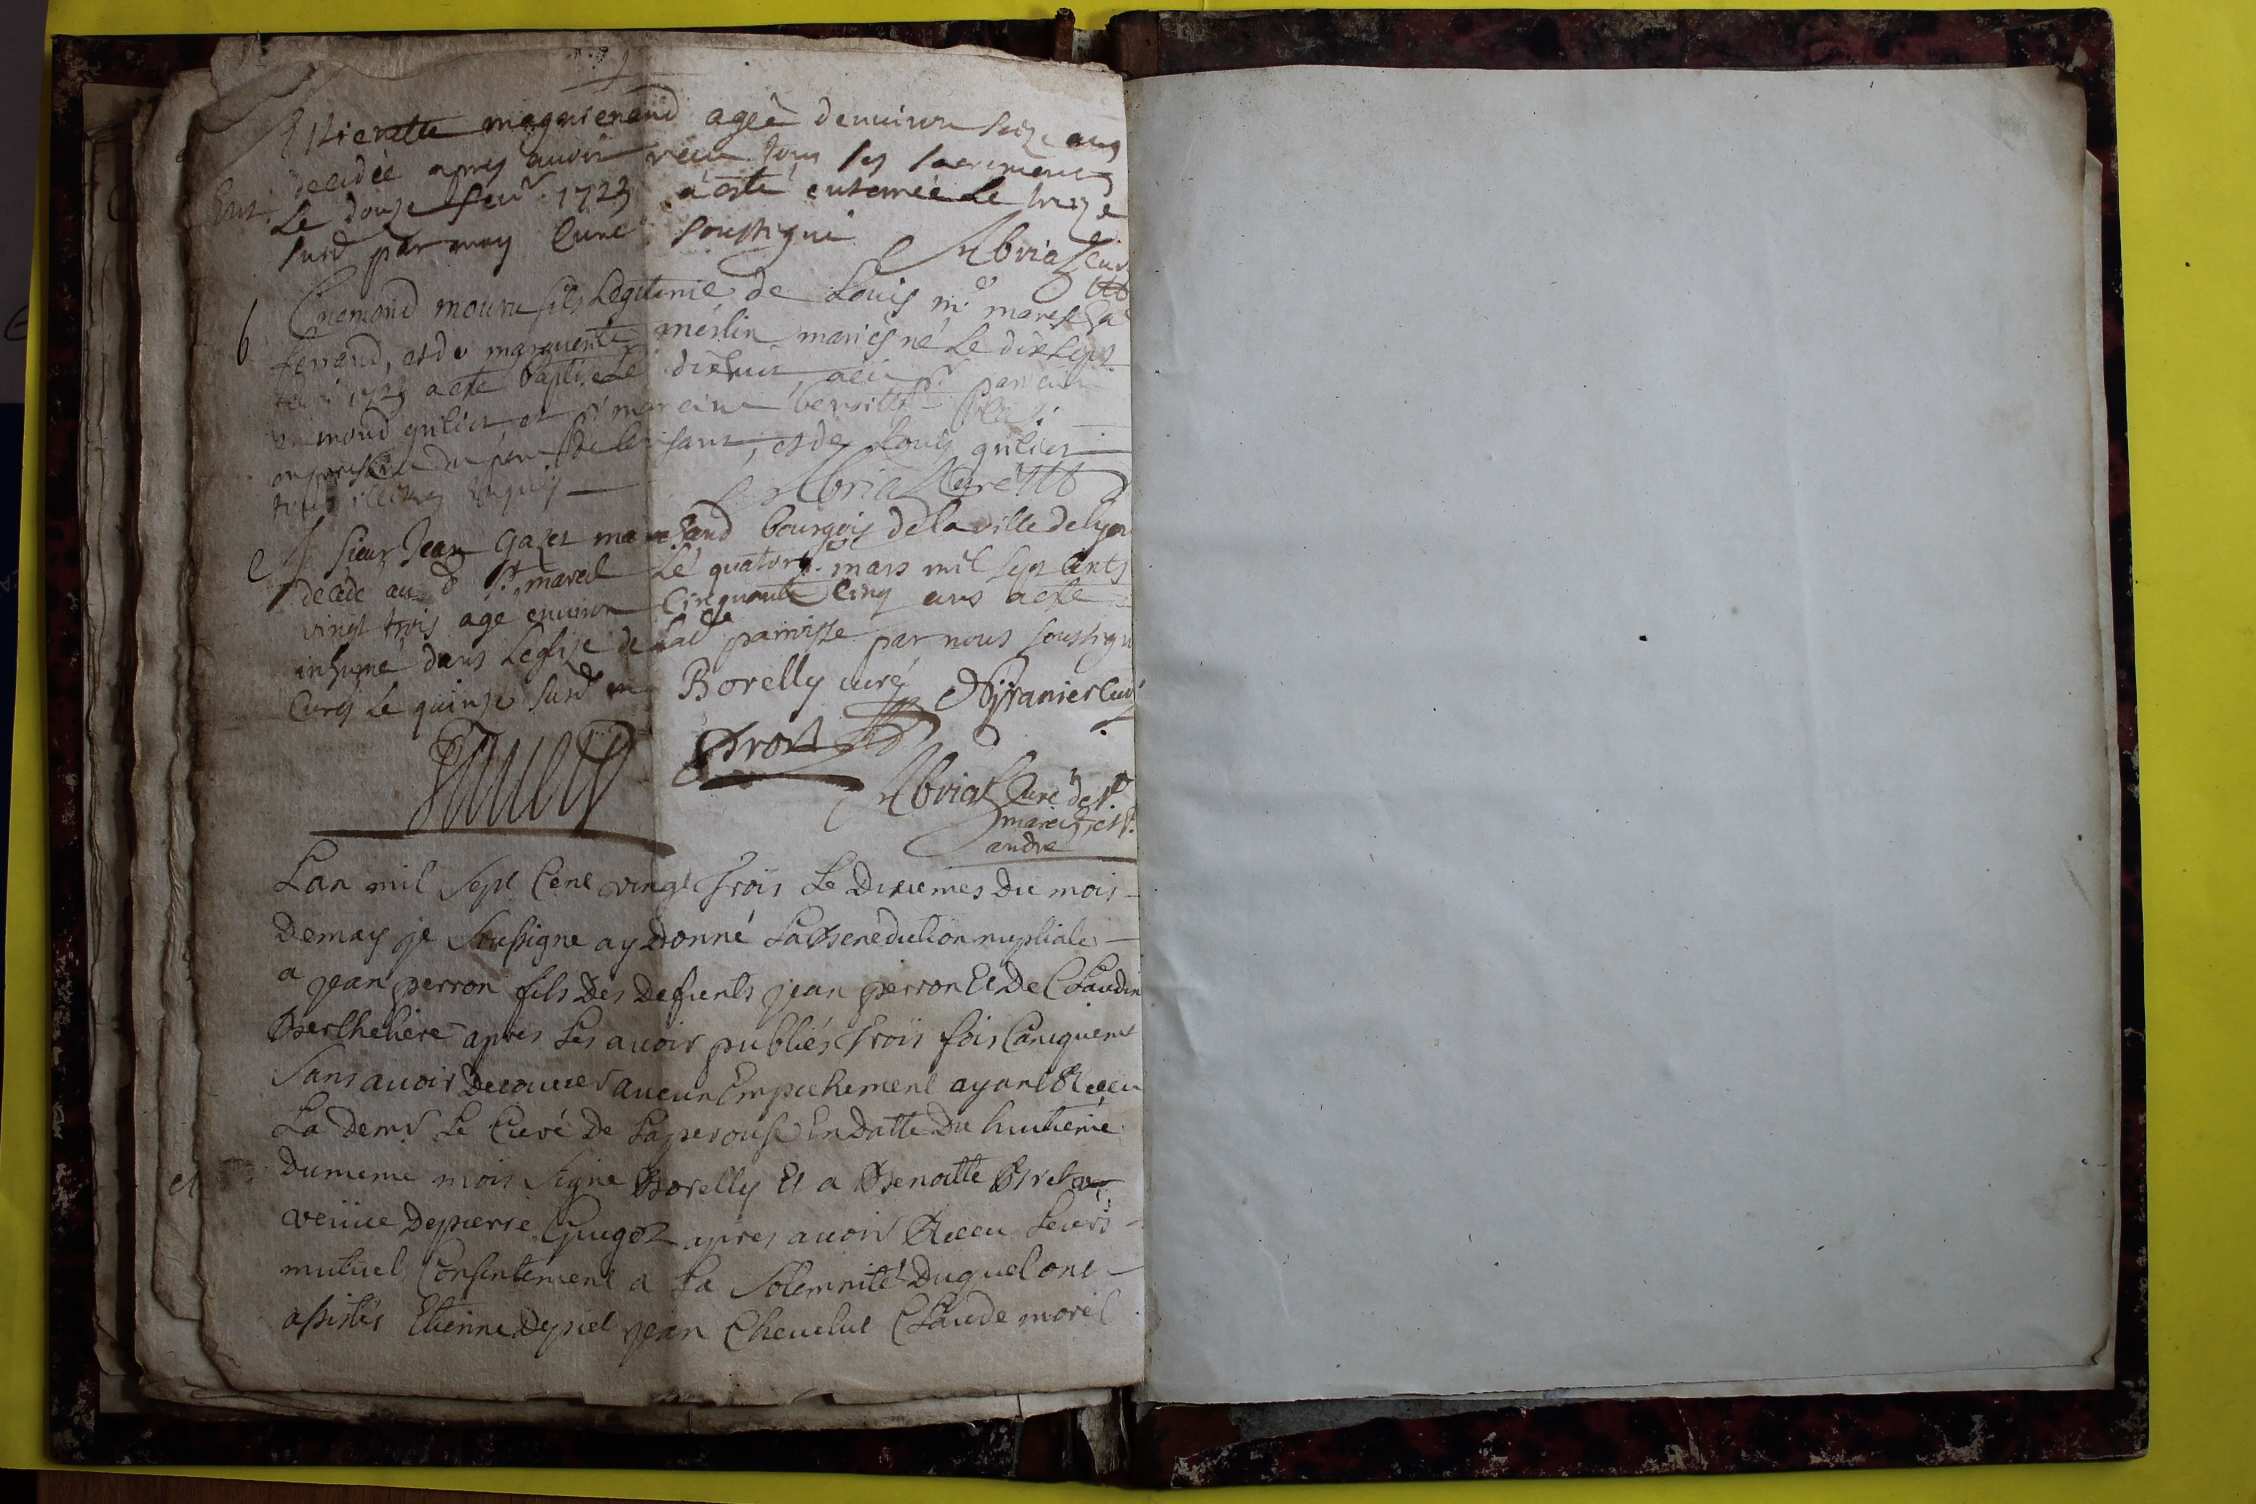 Pierette magnienand agée denuiron seize ans
Ent. decedée apres auoir receu tous les sacrements
Le douze feur 1723 a esté enterrée Le treize
susd par moy Curé soussigné Abrial Curé
b Enemond mouru fils Legitime de Louis me mareschal
ferrand, et de marguerite merlin mariés né Le dixsept
1723 a esté baptisé Le dixhuit,
en presence du pere de lenfant, et de Louis
tous illitrés requis Abrial Curé
e Sieur Jean Gazet marchand bourgois de la ville de Lyon
decedé au d St marcel Le quatorze mars mil sept cents
vingt trois agé enuiron Cinquante Cinq ans a esté
inhumé dans Leglise de lade parroisse par nous soussignés
Curés Le quinze susd Borelly curé
Abrial Curé de St
marcel, et St
andre
Lan mil Sept Cent vingt trois Le Dixiemes Du mois
Demay je Soussigne ay Donné La Benediction nuptiale
a jean perron fils Des Defunts jean perron Et De Claudine
Bertheliere apres Les auoir publiés trois fois Canoniquement
Sans auoir Decouuert aucun Empechement ayant Receu
La Demr Le Curé De Laperouse En Datte Du huitiéme
Dumeme mois Signe Borelly Et a Benoitte
veuue Depierre Guigoz apres auoir Receu Leurs
mutuel Consentement a La Solemnité Duquel ont
assistés Etienne Depiel jean Cheuelut Claude morel